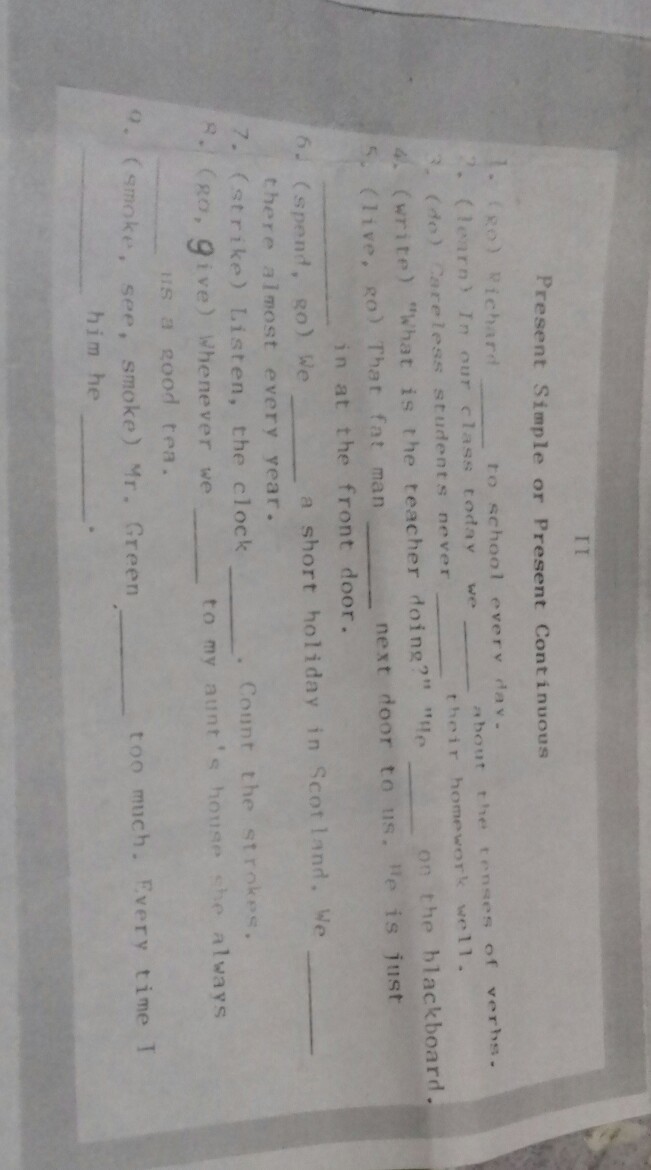 II
Present Simple or Present Continuous
1. (go) Richard ______ to school every day.
2. (learn) In our class today we ______ about the tenses of verbs.
3. (do) Careless students never ______ their homework well.
4. (write) "What is the teacher doing?" "He ______ on the blackboard.
5. (live, go) That fat man ______ next door to us. He is just
______ in at the front door.
6. (spend, go) We ______ a short holiday in Scotland. We ______
there almost every year.
7. (strike) Listen, the clock ______. Count the strokes.
8. (go, give) Whenever we ______ to my aunt's house she always
______ us a good tea.
9. (smoke, see, smoke) Mr. Green ______ too much. Every time I
______ him he ______.